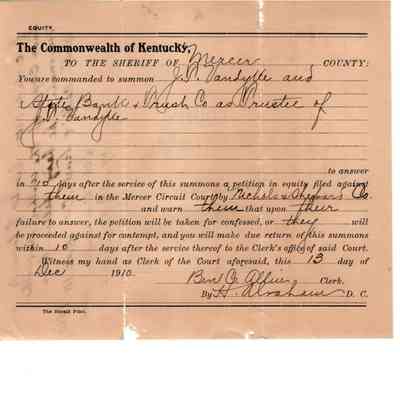 EQUITY.
The Commonwealth of Kentucky,
TO THE SHERIFF OF Mercer COUNTY:
You are commanded to summon J. D. Vandytte and
State Bank & Trust Co as Trustee of
J. D. Vandytte
to answer
in 20 days after the service of this summons a petition in equity filed against
them in the Mercer Circuit Court by Nichols & Co.
and warn them that upon their
failure to answer, the petition will be taken for confessed, or they will
be proceeded against for contempt, and you will make due return of this summons
within 10 days after the service thereof to the Clerk's office of said Court.
Witness my hand as Clerk of the Court aforesaid, this 13 day of
Dec 1910. Ben C. Allin, Clerk.
By H. Abraham D. C.
The Herald Print.